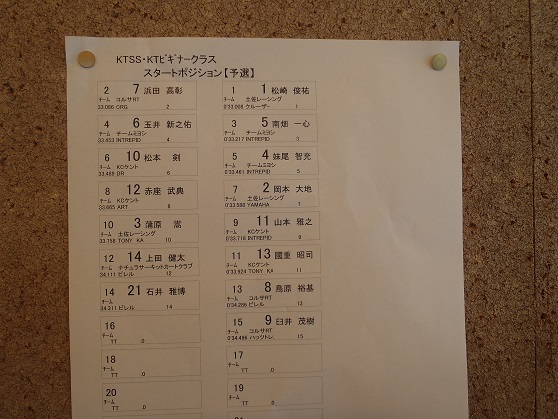 KTSS・KTﾋﾞｷﾞﾅｰクラス
スタートポジション【予選】
2 7 浜田 高彰
ﾁｰﾑ コルサRT
33.086 ORG 2
1 1 松崎 俊祐
ﾁｰﾑ 土佐レーシング
0'33.008 クルーザー 1
4 6 玉井 新之佑
ﾁｰﾑ チームミヨシ
33.453 INTREPID 4
3 5 南畑 一心
ﾁｰﾑ チームミヨシ
0'33.217 INTREPID 3
6 10 松本 剣
ﾁｰﾑ KCケント
33.489 DR 6
5 4 妹尾 智充
ﾁｰﾑ チームミヨシ
0'33.461 INTREPID 5
8 12 赤座 武典
ﾁｰﾑ KCケント
33.665 ART 8
7 2 岡本 大地
ﾁｰﾑ 土佐レーシング
0'33.588 YAMAHA 7
10 3 蒲原 嵩
ﾁｰﾑ 土佐レーシング
33.758 TONY KA 10
9 11 山本 雅之
ﾁｰﾑ KCケント
0'33.716 INTREPID 9
12 14 上田 健太
ﾁｰﾑ ナチュラサーキットカートクラブ
34.111 ビレル 12
11 13 國重 昭司
ﾁｰﾑ KCケント
0'33.924 TONY KA 11
14 21 石井 雅博
ﾁｰﾑ
34.311 ビレル 14
13 8 島原 裕基
ﾁｰﾑ コルサRT
0'34.286 ビレル 13
16
ﾁｰﾑ
TT .0
15 9 臼井 茂樹
ﾁｰﾑ コルサRT
0'34.496 15
18
ﾁｰﾑ
TT .0
17
ﾁｰﾑ
TT .0
20
ﾁｰﾑ
TT .0
19
ﾁｰﾑ
TT .0